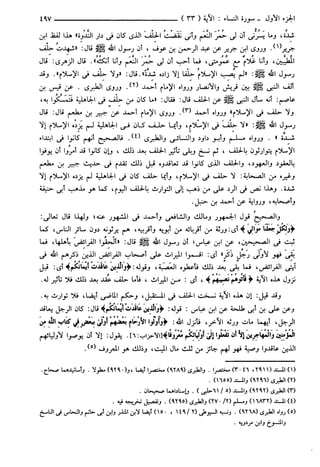 الجزء الأول ـ سورة النساء : الآية ( ٣٣ ) ٤٩٧
شدةً، وما يسرُّني أن لي حُمْرَ النَّعَم وأني نَقَضْتُ الحَلْفَ الذي كان في دار النَّدْوة» هذا لفظ ابن
جرير(١). وروى ابن جرير عن عبد الرحمن بن عوف ، أن رسول الله ﷺ قال: «شهدتُ حِلْفَ
المطيَّبين، وأنا غلامٌ مع عُمُومتي، فما أحب أن لي حُمْرَ النَّعَم وأني أنكثُه». قال الزهري: قال
رسول الله ﷺ: «لم يُصِب الإسلامُ حِلْفاً إلا زاده شدَّة». قال: «ولا حِلْفَ في الإسلام». وقد
ألف النبي ﷺ بين قريش والأنصار ورواه الإمام أحمد(٢). وروى الطبري . عن قيس بن
عاصم: أنه سأل النبي ﷺ عن الحلف قال: فقال: «ما كان من حِلْفٍ في الجاهلية فتمسَّكُوا به،
ولا حلف في الإسلام» ورواه أحمد(٣). وروى الإمام أحمد عن جبير بن مطعم قال: قال
رسول الله ﷺ: «لا حِلْفَ في الإسلام، وأيُّما حلف كان في الجاهلية لم يَزِدْه الإسلام إلا
شدة». وهكذا رواه مسلم وأبو داود والنسائي والطبري(٤). فالصحيح أنهم كانوا في ابتداء
الإسلام يتوارثون بالحلف، ثم نسخ وبقي تأثير الحلف بعد ذلك ، وإن كانوا قد أُمروا أن يوفوا
بالعقود والعهود، والحلف الذي كانوا قد تعاقدوه قبل ذلك تقدم في حديث جبير بن مطعم
وغيره من الصحابة: لا حلف في الإسلام، وأيما حلف كان في الجاهلية لم يزده الإسلام إلا
شدة. وهذا نص في الرد على من ذهب إلى التوارث بالحلف اليوم، كما هو مذهب أبي حنيفة
وأصحابه، ورواية عن أحمد بن حنبل.
والصحيحُ قول الجمهور ومالك والشافعي وأحمد في المشهور عنه؛ ولهذا قال تعالى:
﴿وَلِكُلٍّ جَعَلْنَا مَوَالِيَ﴾ أي: ورثة من أقربائه من أبويه وأقربيه، هم يرثونه دون سائر الناس، كما
ثبت في الصحيحين، عن ابن عباس، أن رسول الله ﷺ قال: «ألحِقُوا الفرائضَ بأهلها، فما
بَقِيَ فهو لأولى رجلٍ ذَكَرٍ» أي: اقسموا الميراث على أصحاب الفرائض الذين ذكرهم الله في
آيتي الفرائض، فما بقي بعد ذلك فأعطوه العَصَبة، وقوله: ﴿وَالَّذِينَ عَاقَدَتْ أَيْمَانُكُمْ﴾ أي: قبل
نزول هذه الآية ﴿فَآتُوهُمْ نَصِيبَهُمْ﴾ ، أي: من الميراث ، فأما حلف عُقد بعد ذلك فلا تأثير له.
وقد قيل: إن هذه الآية نسخت الحلف في المستقبل، وحكم الماضي أيضا، فلا توارث به.
وعن علي بن أبي طلحة عن ابن عباس : قوله: ﴿وَالَّذِينَ عَاقَدَتْ أَيْمَانُكُمْ﴾ قال: كان الرجل يعاقد
الرجل، أيهما مات ورثه الآخر، فأنزل الله: ﴿وَأُولُوا الْأَرْحَامِ بَعْضُهُمْ أَوْلَىٰ بِبَعْضٍ فِي كِتَابِ اللَّهِ مِنَ
الْمُؤْمِنِينَ وَالْمُهَاجِرِينَ إِلَّا أَن تَفْعَلُوا إِلَىٰ أَوْلِيَائِكُم مَّعْرُوفًا﴾[الأحزاب:٦]. يقول: إلا أن يوصوا لأوليائهم
الذين عاقدوا وصية فهو لهم جائز من ثلث مال الميت، وذلك هو المعروف(٥).
(١) المسند (٢٩١١، ٣٠٤٦) مختصرا . والطبري (٩٢٨٩) مختصرا أيضا، و(٩٢٩٠) مطولا . وأسانيدهما صحاح.
(٢) الطبري (٩٢٩٦) والمسند (١٦٥٥)
(٣) الطبري (٩٢٩٢) والمسند (٥/ ٦١ حلبي) . وإسنادهما صحيحان .
(٤) المسند (١٦٨٣٢) ومسلم (٢/ ٢٧٠) والطبري (٩٢٩٥) . وتفصيل تخريجه فيه .
(٥) رواه الطبري (٩٢٦٨) . ونسبه السيوطي (٢/ ١٤٩ ، ١٥٠) أيضا لابن المنذر وابن أبي حاتم والنحاس في الناسخ
والمنسوخ وابن مردويه .